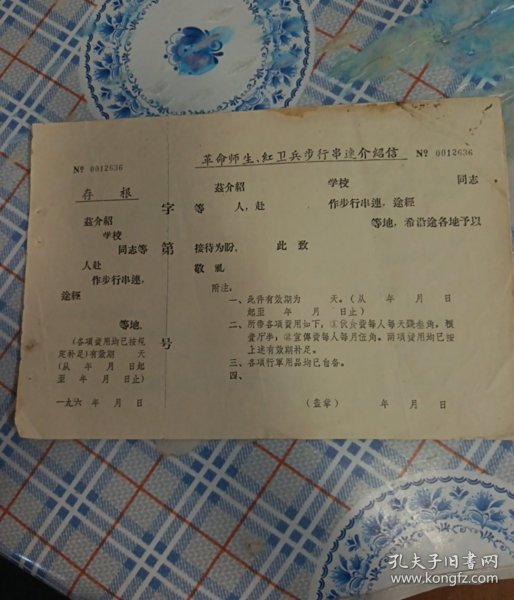 革命师生、紅卫兵步行串連介紹信 № 0012636
茲介紹 学校 同志
等 人，赴 作步行串連，途經
等地，希沿途各地予以
接待为盼， 此 致
敬礼
附注：
一、此件有效期为 天。（从 年 月 日
起至 年 月 日止）
二、所带各項費用如下，①伙食費每人每天貳叁角，糧
②宣傳費每人每月伍角。兩項費用均已按
上述有效期补足。
三、各項行軍用品均已自备。
四、
（盖章） 年 月 日
字
第
号
№ 0012636
存 根
茲介紹
学校
同志等
人赴
作步行串連，
途經
等地。
（各項費用均已按規
定补足）有效期 天
（从 年 月 日起
至 年 月 日止）
一九六 年 月 日
孔夫子旧书网
www.kongfz.com